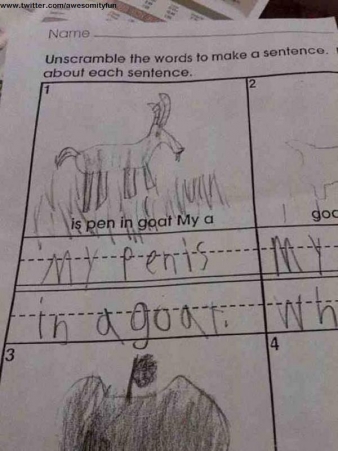 www.twitter.com/awesomityfun
Name
Unscramble the words to make a sentence.
about each sentence.
1
2
is pen in goat My a
goa
My Penis
My
in a goat.
Wh
3
4